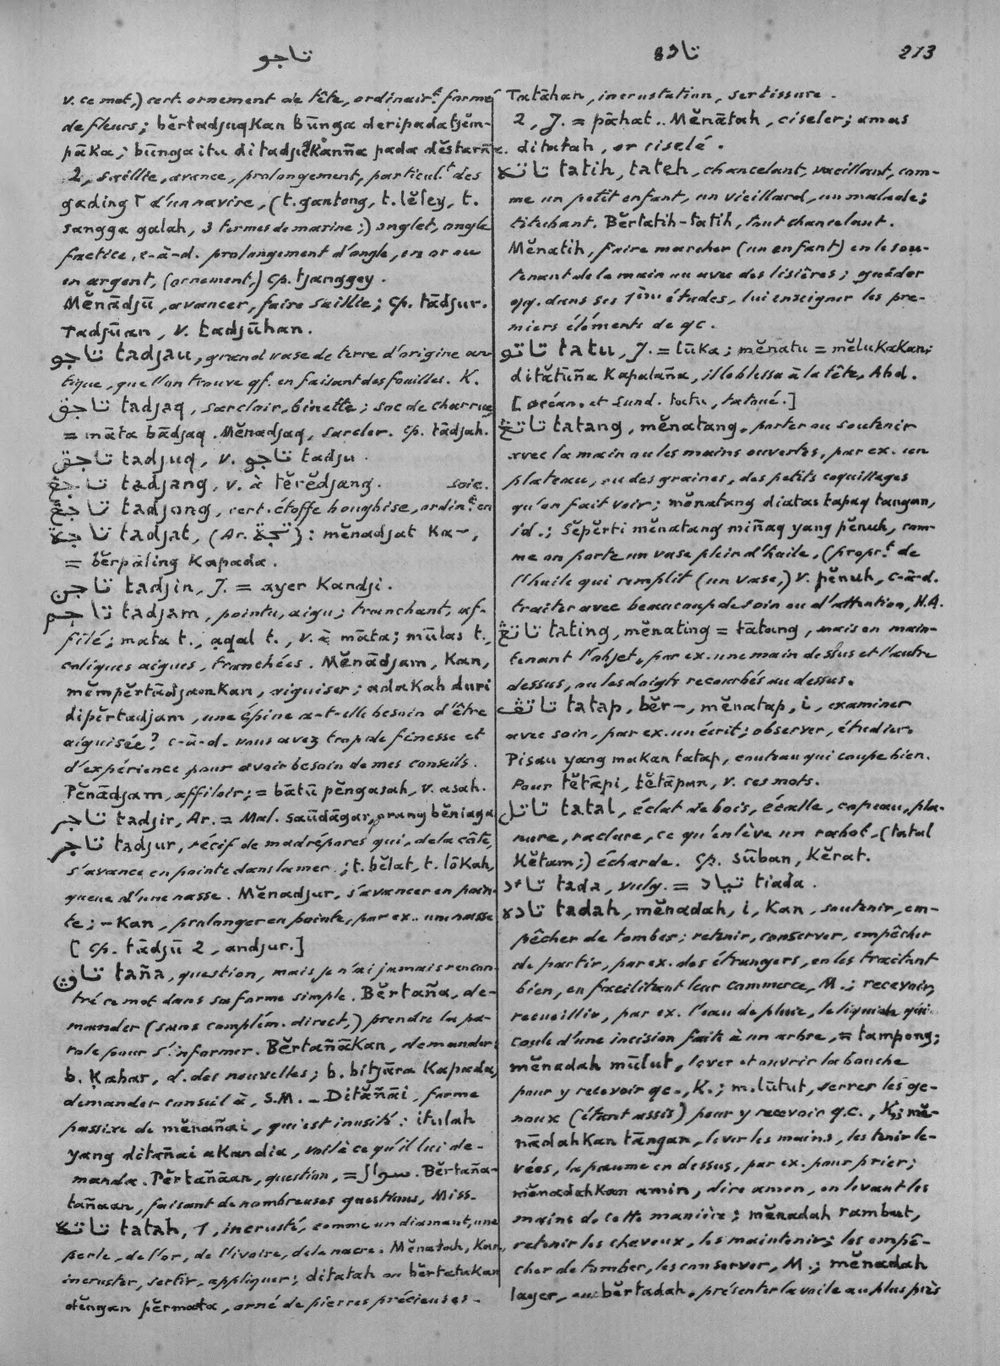 تاجو
تاده
213
v. ce mot,) cert. ornement de tête, ordinair.t formé
de fleurs; bĕrtadjuqkan būnga deripada tjĕm-
pāka; būnga itu di tadjukkañña pada dĕstarña.
2, saillie, avance, prolongement, particul.t des
gading d'un navire, (t. gantong, t. lĕley, t.
sangga galah, 3 termes de marine;) onglet, ongle
factice, c-à-d. prolongement d'ongle, en or ou
en argent, (ornement,) cp. tjanggey.
Mĕnādjū, avancer, faire saillie; cp. tādjur.
Tadjūan, v. tadjūhan.
تاجو tadjau, grand vase de terre d'origine an-
tique, que l'on trouve qf. en faisant des fouilles. K.
تاجق tadjaq, sarcloir, binette; soc de charrue
= māta bādjaq. Mĕnadjaq, sarcler. cp. tādjah.
تاجق tadjuq, v. تاجو tadju.
تاجڠ tadjang, v. à tĕrĕdjang.
تاجڠ tadjong, cert. étoffe boughise, ordin.t en soie.
تاجة tadjat, (Ar. تجة): mĕnadjat ka-,
= bĕrpāling kapada.
تاجن tadjin, J. = ayer kandji.
تاجم tadjam, pointu, aigu; tranchant, af-
filé; mata t., aqal t., v. à māta; mūlas t.,
coliques aigues, tranchées. Mĕnādjam, kan,
mĕmpĕrtādjamkan, aiguiser; adakah duri
dipĕrtadjam, une épine a-t-elle besoin d'être
aiguisée? c-à-d. vous avez trop de finesse et
d'expérience pour avoir besoin de mes conseils.
Pĕnādjam, affiloir; = bātū pĕngasah, v. asah.
تاجر tadjir, Ar. = Mal. saūdāgar, orang bĕniaga
تاجر tadjur, récif de madrépores qui, de la côte,
s'avance en pointe dans la mer; t. bĕlat, t. lōkah,
queue d'une nasse. Mĕnadjur, s'avancer en poin-
te; -kan, prolonger en pointe, par ex. une nasse
[cp. tādjū 2, andjur.]
تاڽ taña, question, mais je n'ai jamais rencon-
tré ce mot dans sa forme simple. Bĕrtaña, de-
mander (sans complém. direct,) prendre la pa-
role pour s'informer. Bĕrtañākan, demander;
b. kabar, d. des nouvelles; b. bitjāra kapada,
demander conseil à, S.M. - Ditāñāi, forme
passive de mĕnañai, qui est inusité: itulah
yang ditañai akan dia, voilà ce qu'il lui de-
manda. Pĕrtañāan, question, = سوال. Bĕrtaña-
tañaan, faisant de nombreuses questions, Miss.
تاته tatah, 1, incrusté, comme un diamant, une
perle, de l'or, de l'ivoire, de la nacre. Mĕnatah, kan,
incruster, sertir, appliquer; ditatah ou bĕrtatakan
dĕngan pĕrmata, orné de pierres précieuses.
Tatāhan, incrustation, sertissure.
2, J. = pāhat. Mĕnātah, ciseler; amas
ditatah, or ciselé.
تاته tatih, tateh, chancelant, vacillant, com-
me un petit enfant, un vieillard, un malade;
titubant. Bĕrtatih-tatih, tout chancelant.
Mĕnatih, faire marcher (un enfant) en le sou-
tenant de la main ou avec des lisières; guider
qq. dans ses 1ères études, lui enseigner les pre-
miers éléments de qc.
تاتو tatu, J. = lūka; mĕnatu = mĕlukakan;
ditātūña kapalaña, il le blessa à la tête, Abd.
[océan. et Sund. tatu, tatoué.]
تاتڠ tatang, mĕnatang, porter ou soutenir
avec la main ou les mains ouvertes, par ex. un
plateau, ou des graines, des petits coquillages
qu'on fait voir; mĕnatang diatas tapaq tangan,
id.; sĕpĕrti mĕnatang miñaq yang pĕnuh, com-
me on porte un vase plein d'huile, (propr.t de
l'huile qui remplit (un vase,) v. pĕnuh, c-à-d.
traiter avec beaucoup de soin ou d'attention, H.A.
تاتڠ tating, mĕnating = tātang, mais en main-
tenant l'objet, par ex. une main dessus et l'autre
dessus, ou les doigts recourbés au dessus.
تاتڤ tatap, bĕr-, mĕnatap, i, examiner
avec soin, par ex. un écrit; observer, étudier.
Pisau yang makan tatap, couteau qui coupe bien.
Pour tĕtāpi, tĕtāpan, v. ces mots.
تاتل tatal, éclat de bois, écaille, copeau, pla-
nure, raclure, ce qu'enlève un rabot, (tatal
kĕtam;) écharde. cp. sūban, kĕrat.
تاد tada, vulg. = تياد tiada.
تاده tadah, mĕnadah, i, kan, soutenir, em-
pêcher de tomber; retenir, conserver, empêcher
de partir, par ex. des étrangers, en les traitant
bien, en facilitant leur commerce, M.; recevoir,
recueillir, par ex. l'eau de pluie, le liquide qui
coule d'une incision faite à un arbre, = tampong;
mĕnadah mūlut, lever et ouvrir la bouche
pour y recevoir qc., K.; m. lūtut, serrer les ge-
noux (étant assis) pour y recevoir q.c., K.; mĕ-
nādahkan tāngan, lever les mains, les tenir le-
vées, la paume en dessus, par ex. pour prier;
mĕnadahkan amin, dire amen, en levant les
mains de cette manière; mĕnadah rambut,
retenir les cheveux, les maintenir; les empê-
cher de tomber, les conserver, M.; mĕnadah
layer, ou bĕrtadah, présenter la voile au plus près